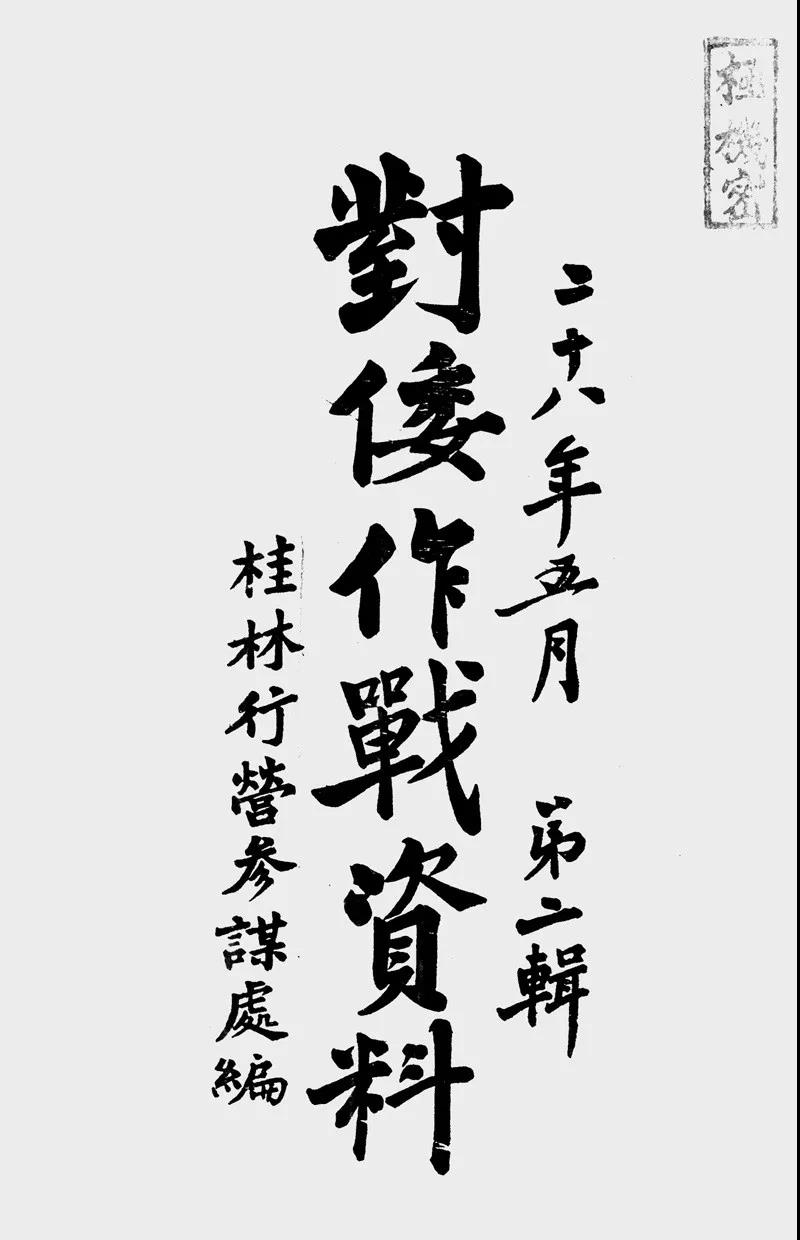 極機密
二十八年五月 第二輯
對倭作戰資料
桂林行營參謀處編